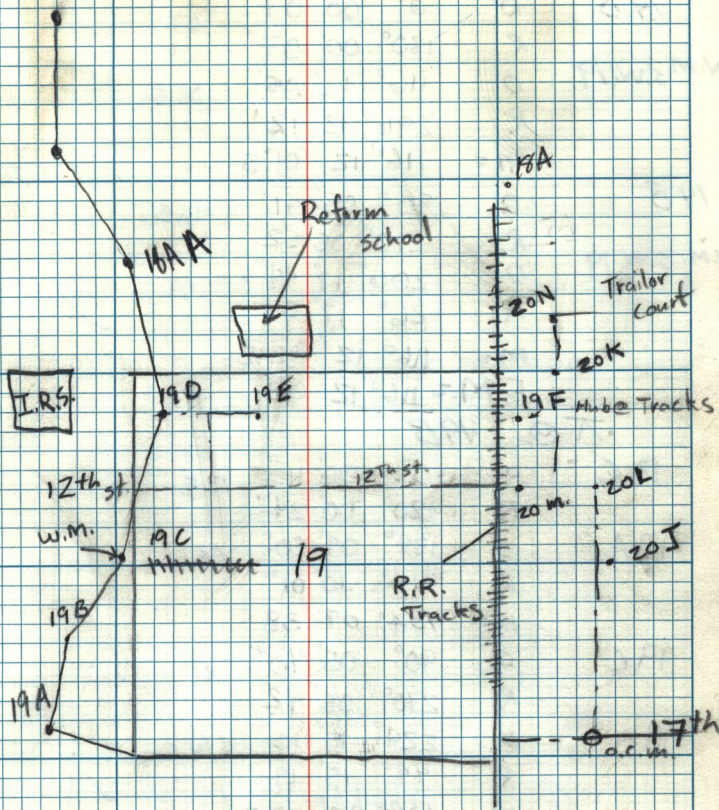 18A
18A A
Reform
school
20N
Trailor
Court
20K
I.R.S.
19D
19E
19F
Hub @ Tracks
12th st.
12Th st.
20 m.
20L
W.M.
19C
19
20J
R.R.
Tracks
19B
19A
17th
o.c.m.